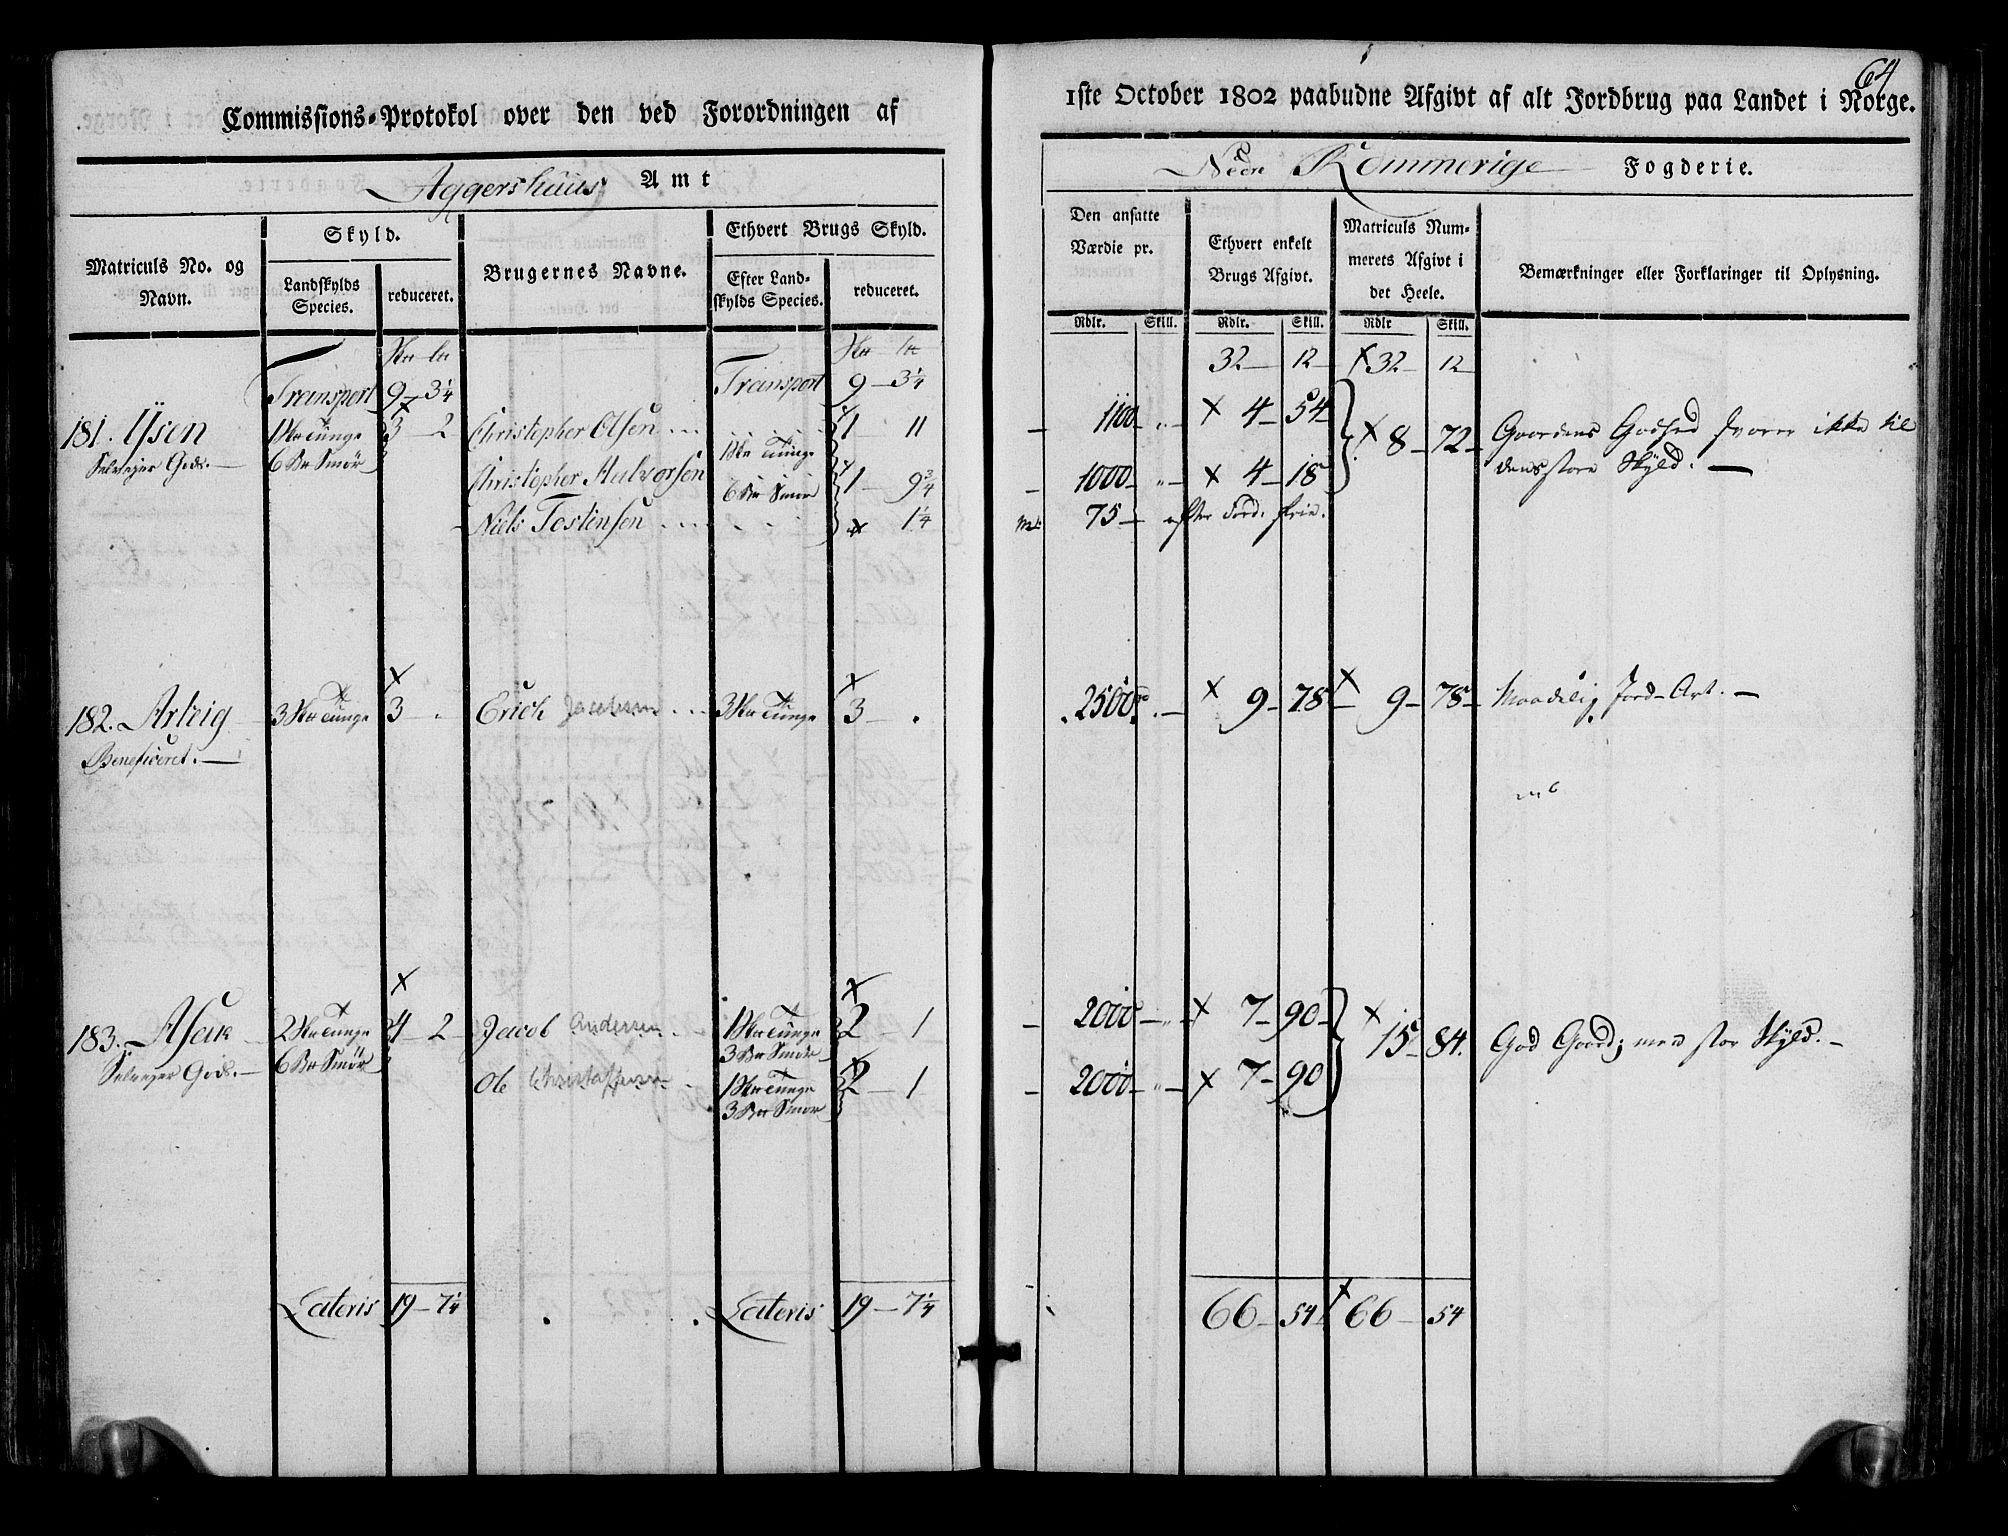 64
Commissions-Protokol over den ved Forordningen af
1ste October 1802 paabudne Afgivt af alt Jordbrug paa Landet i Norge.
Aggershuus Amt
Nedre Rommerige Fogderie.
Matriculs No. og Navn.
Skyld.
Landskylds Species.
reduceret.
Brugernes Navne.
Ethvert Brugs Skyld.
Efter Landskylds Species.
reduceret.
Den ansatte Værdie pr.
Ethvert enkelt Brugs Afgivt.
Matriculs Nummerets Afgivt i det Heele.
Bemærkninger eller Forklaringer til Oplysning.
Rdlr. Skill. Rdlr. Skill. Rdlr Skill.
Transport 9 - 3¼ Transport 9 - 3¼ 32 - 12 x 32 12
181. Ÿsen 1 Tunge x 3 - 2 Christopher Olsen 1 - 11 1100 x 4 - 54 x 8 - 72 Gaardens Godhed svarer ikke til
Selveyer Gods. 6 Smør 1 Tunge dens store Skyld.
Christopher Halvorsen 6 Smør 1 - 9¾ 1000 x 4 - 18
Niels Tostensen x 1¼ 75 efter Ford. frie.
182. Arteig 3 Tunge x 3 - Erich Jacobsen 3 Tunge x 3 - 2500 x 9 - 78 x 9 - 78 Maadelig Jord-Art.
Beneficeret.
183. Asak 2 Tunge x 4 - 2 Jacob Andersen 1 Tunge x 2 - 1 2000 x 7 - 90 x 15 - 84. God Gaard; men stor Skyld.
Selveyer Gods. 6 Smør 3 Smør
Ole Christoffersen 1 Tunge 2 - 1 2000 x 7 - 90
3 Smør
Lateris 19 - 7¼ Lateris 19 - 7¼ 66 - 54 x 66 - 54